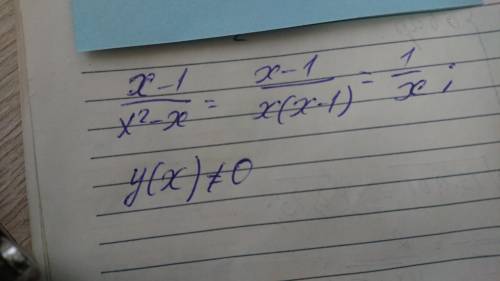 (x-1)/(x²-x) = (x-1)/(x(x-1)) = 1/x;
y(x)≠0